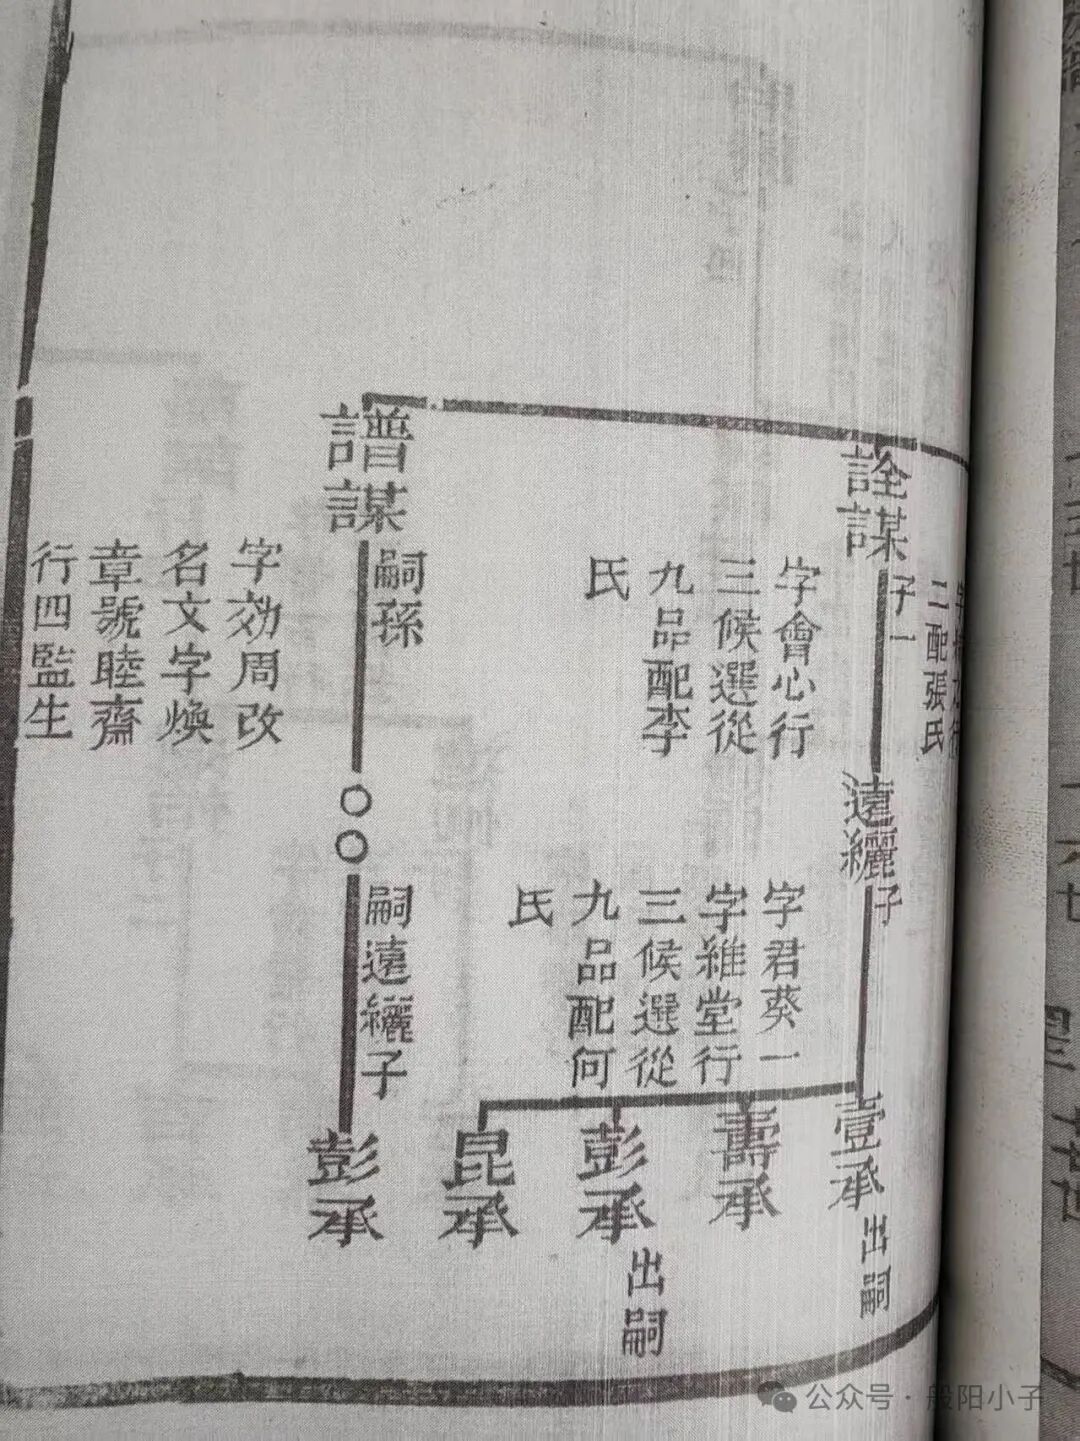 二配張氏
詮謀
子一
字會心行
三候選從
九品配李
氏
遠纚
子
字君葵一
字維堂行
三候選從
九品配何
氏
壹承
出嗣
壽承
彭承
出嗣
昆承
譜謀
嗣孫
字効周改
名文字煥
章號睦齋
行四監生
○○
嗣遠纚子
彭承
公众号·般阳小子